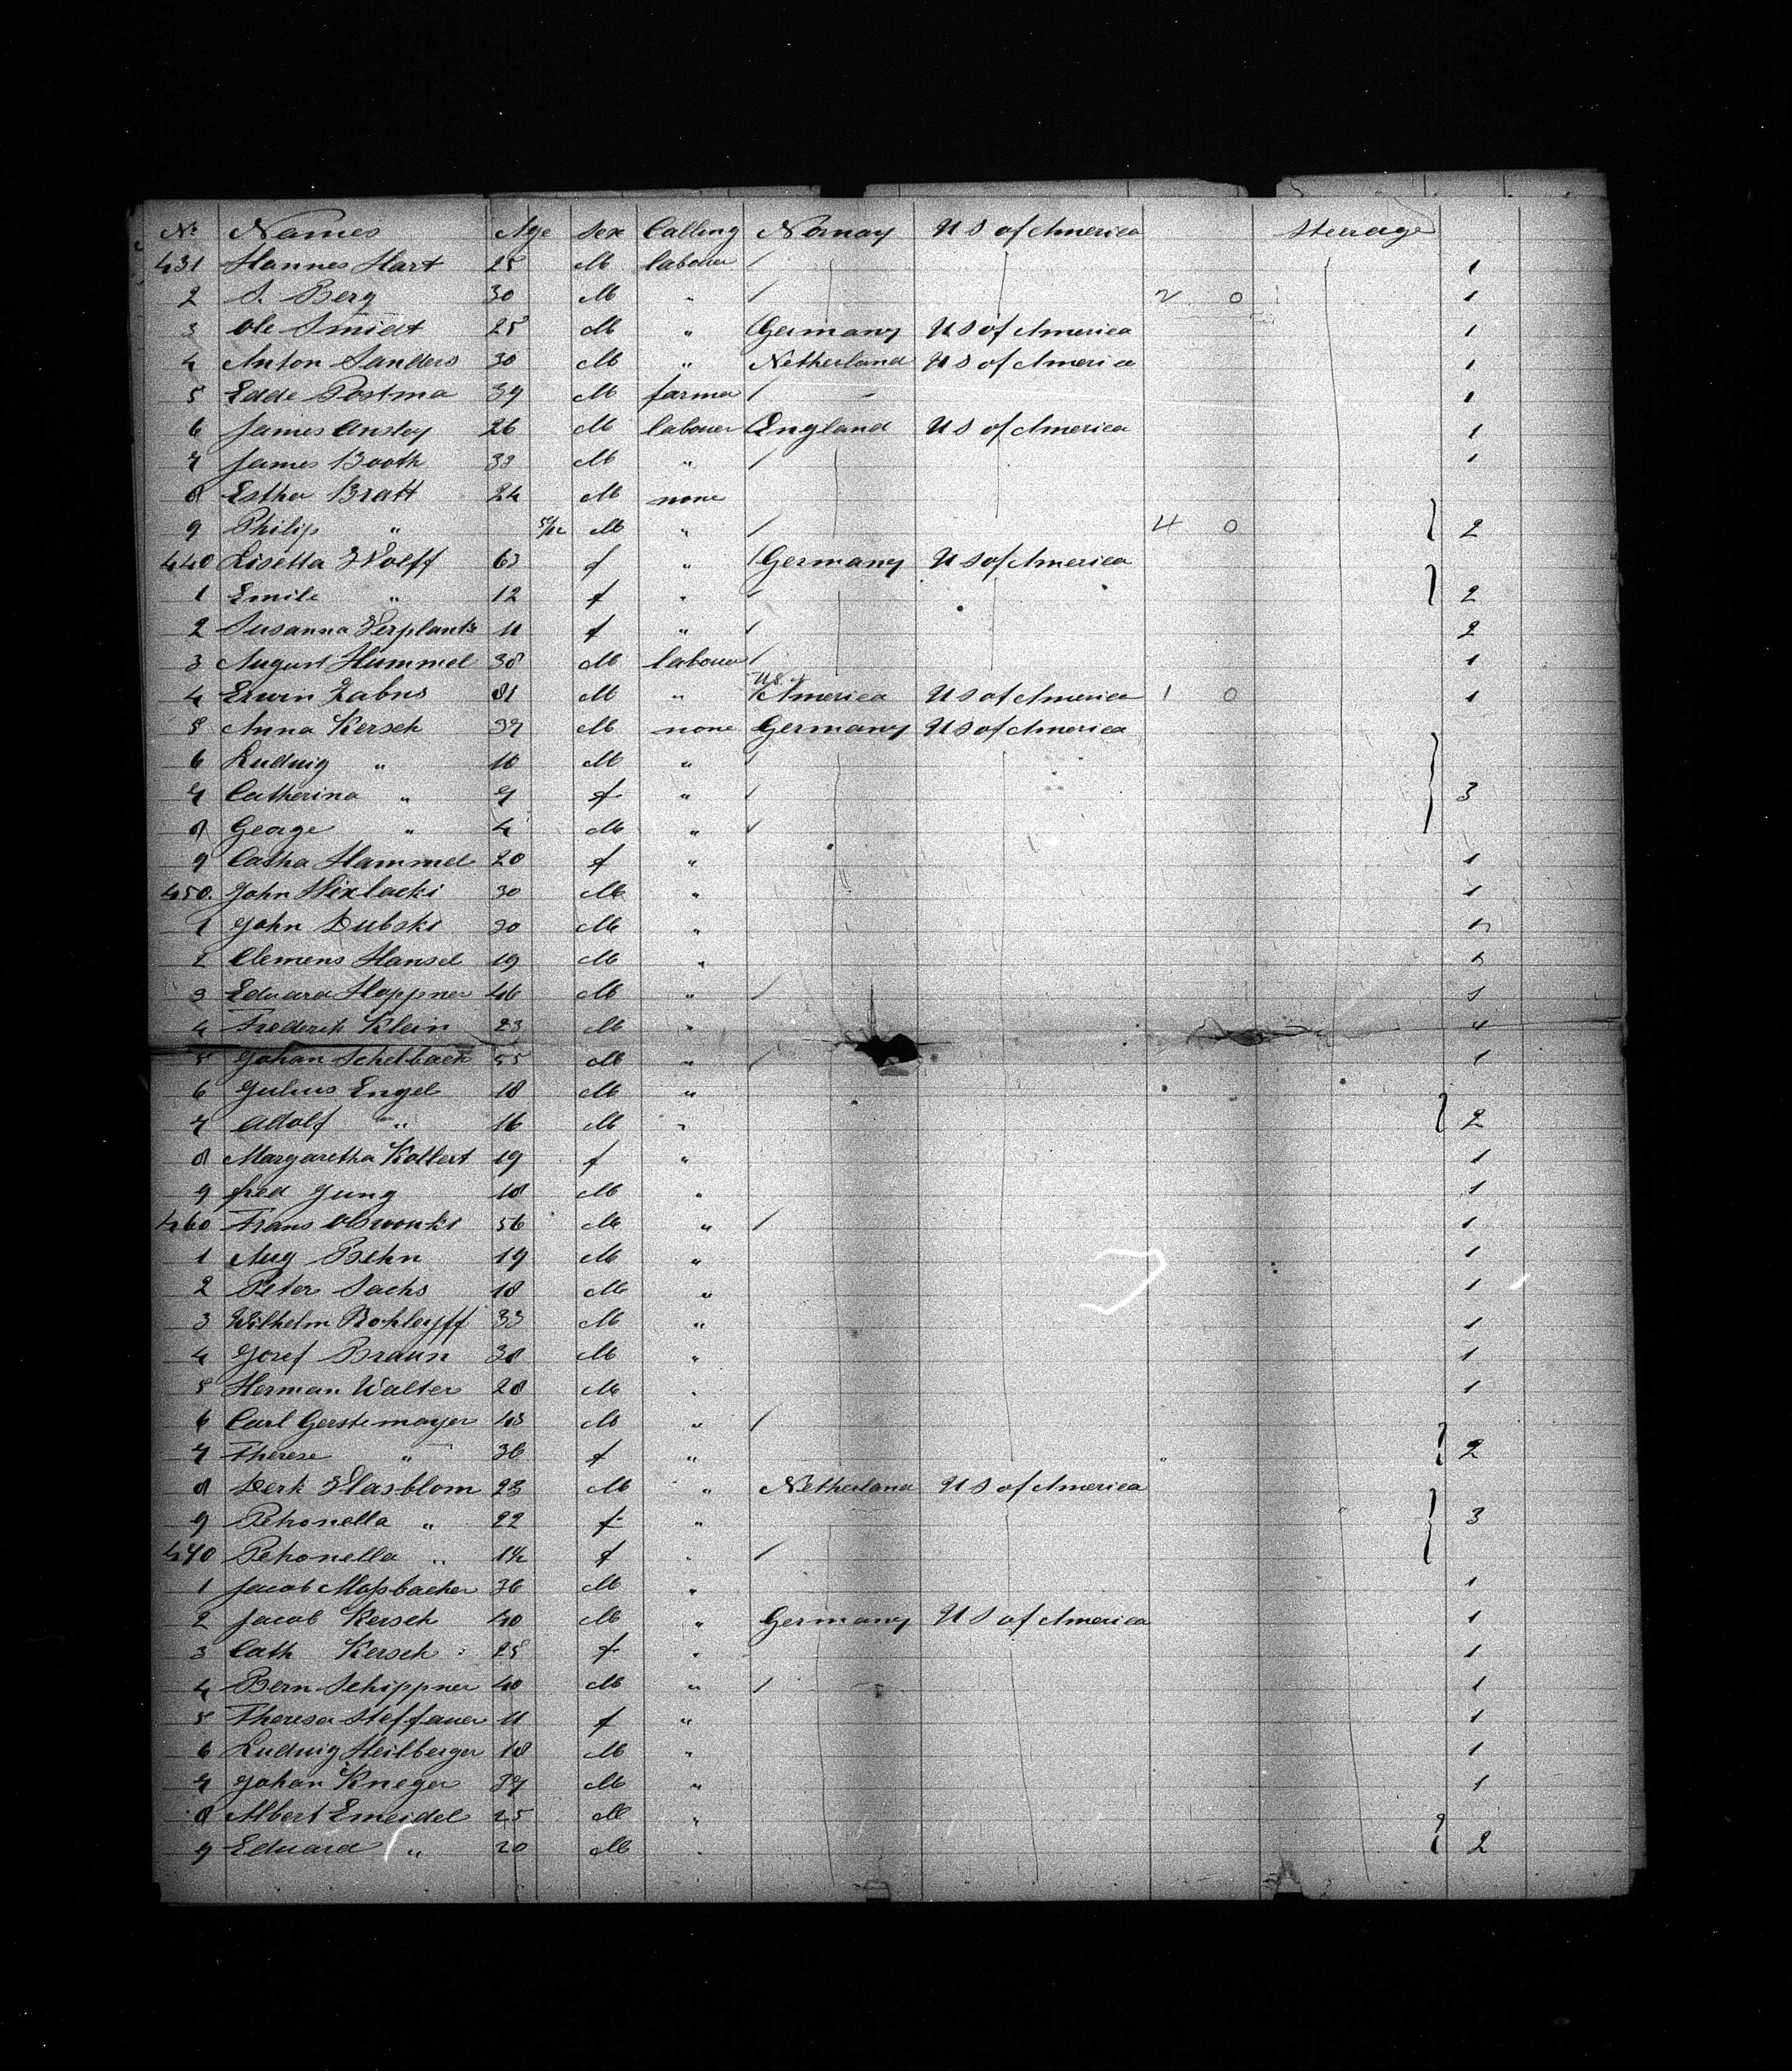 No Names Age Sex Calling Norway U S of America Steerage
431 Hannes Hart 25 M labouer / 1
2 S. Berg 30 M " / 2 0 1
3 Ole Smidt 25 M " Germany U S of America 1
4 Anton Sanders 30 M " Netherland U S of America 1
5 Edde Postma 39 M farmer / 1
6 James Ansley 26 M labouer England U S of America 1
7 James Booth 33 M " / 1
8 Esther Bratt 24 M none
9 Philip " M " / 4 0 2
440 Lisetta Wolff 63 f " Germany U S of America
1 Emile " 12 f " / 2
2 Susanna Verplank 11 f " / 2
3 August Hummel 38 M labouer / 1
4 Erwin Zabns 31 M " U S America U S of America 1 0 1
5 Anna Kersch 37 M none Germany U S of America
6 Ludwig " 10 M " /
7 Catherina " 7 f " / 3
8 George " 4 M " /
9 Catha Hammel 20 f " 1
450. John 30 M " 1
1 John Dubski 30 M " 1
2 Clemens Hansel 19 M " 1
3 Eduard Hoppner 46 M " / 1
4 Frederik Klein 23 M " 1
5 Johan Schelback 55 M " / 1
6 Julius Engel 18 M "
7 Adolf " 16 M " 2
8 Margaretha Kollert 19 f " 1
9 fred Jung 18 M " 1
460 Frans 56 M " / 1
1 Aug Behn 19 M " 1
2 Peter Sachs 18 M " 1
3 Wilhelm 33 M " 1
4 Josef Braun 38 M " 1
5 Herman Walter 28 M " 1
6 Carl Gerstemayer 43 M " /
7 Therese " 36 f " 2
8 Derk Vlasblom 23 M " Netherland U S of America
9 Petronella " 22 f " 3
470 Petronella " 1½ f " /
1 Jacob Moſsbacher 36 M " 1
2 Jacob Kersch 40 M " Germany U S of America 1
3 Cath Kersch 25 f " 1
4 Bern Schippner 40 M " / 1
5 Theresa Steffaner 11 f " 1
6 Ludwig Heilberger 18 M " 1
7 Johan Kneger 37 M " 1
8 Albert Emeidel 25 M "
9 Eduard " 20 M " 2